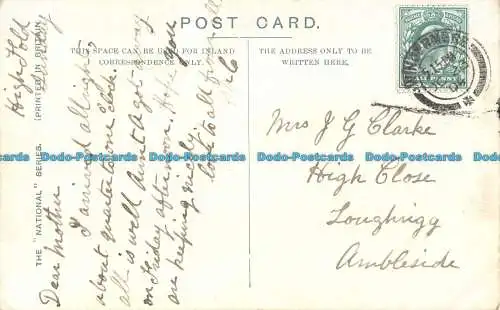 POST CARD.
THIS SPACE CAN BE USED FOR INLAND
CORRESPONDENCE ONLY.
THE ADDRESS ONLY TO BE
WRITTEN HERE.
THE "NATIONAL" SERIES.
(PRINTED IN BRITAIN.
High Fold
Dear Mother
I arrived all right
about quarter to one o'clock.
all is well Aunt Agi
on Friday afternoon. Hope you
are keeping nicely
love to all from
Mrs J G Clarke
High Close
Loughrigg
Ambleside
Dodo-Postcards Dodo-Postcards Dodo-Postcards Dodo-Postcards Dodo-Postcards